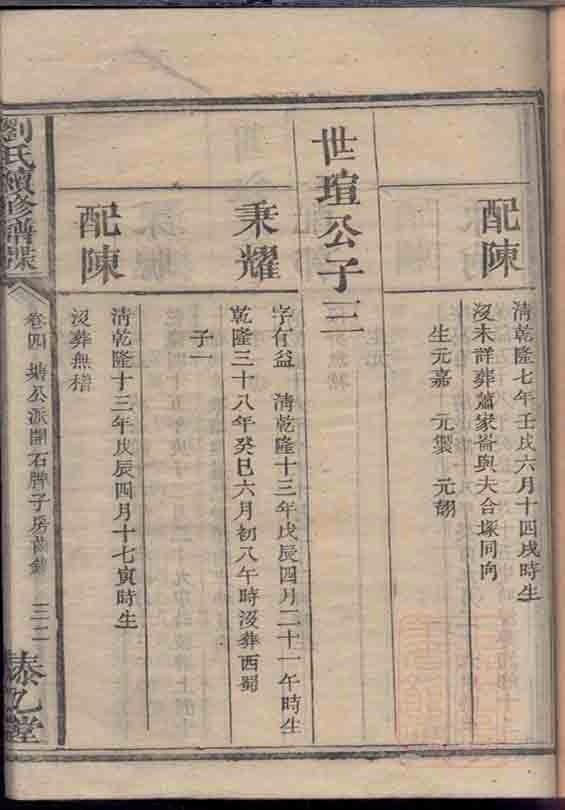 配陳
清乾隆七年壬戌六月十四戌時生
沒未詳葬蕭家崙與夫合塚同向
生元嘉　元製　元翿
世瑄公子三
秉耀
字仔益　清乾隆十三年戊辰四月二十一午時生
乾隆三十八年癸巳六月初八午時沒葬西蜀
子一
配陳
清乾隆十三年戊辰四月十七寅時生
沒葬無稽
劉氏續修譜牒
卷四　塘公派開石牌子房齒錄　三二
乙堂